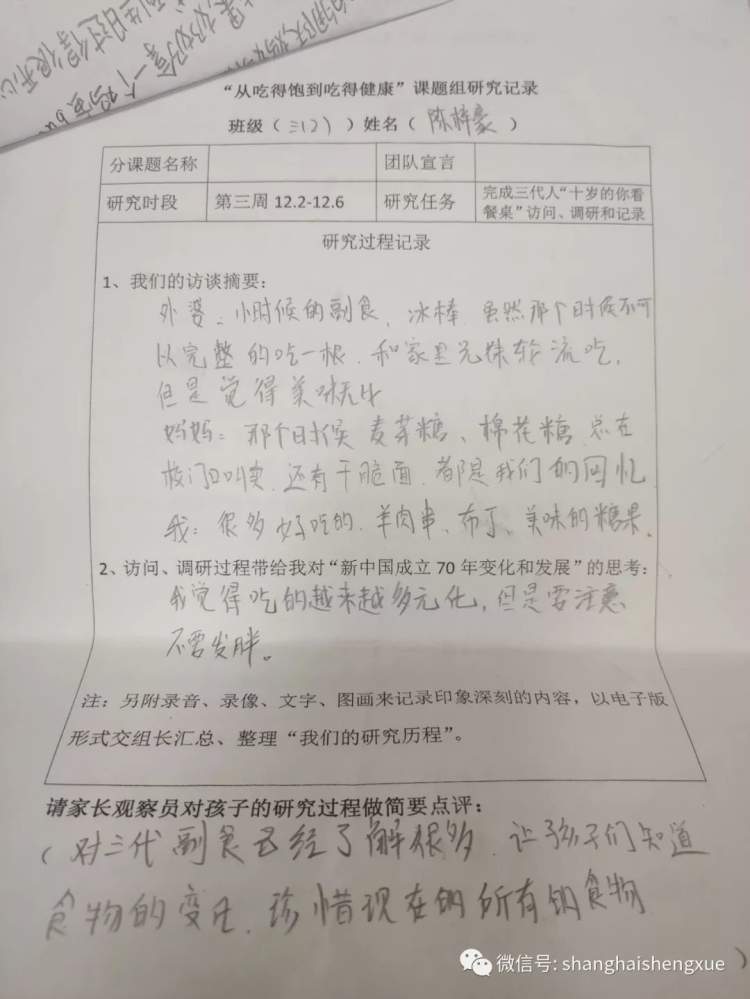 “从吃得饱到吃得健康”课题组研究记录
班级（三(2)）姓名（陈梓豪）
分课题名称 团队宣言
研究时段 第三周 12.2-12.6 研究任务 完成三代人“十岁的你看
餐桌”访问、调研和记录
研究过程记录
1、我们的访谈摘要：
外婆：小时候的副食，冰棒 虽然那个时候不可
以完整的吃一根，和家里兄妹轮流吃，
但是觉得美味无比
妈妈：那个时候 麦芽糖、棉花糖 总在
校门口叫卖，还有干脆面，都是我们的回忆
我：很多好吃的，羊肉串、布丁、美味的糖果。
2、访问、调研过程带给我对“新中国成立 70 年变化和发展”的思考：
我觉得吃的越来越多元化，但是要注意
不要发胖。
注：另附录音、录像、文字、图画来记录印象深刻的内容，以电子版
形式交组长汇总、整理“我们的研究历程”。
请家长观察员对孩子的研究过程做简要点评：
（对三代副食已经了解很多，让孩子们知道
食物的变化，珍惜现在的所有的食物
）
微信号: shanghaishengxue